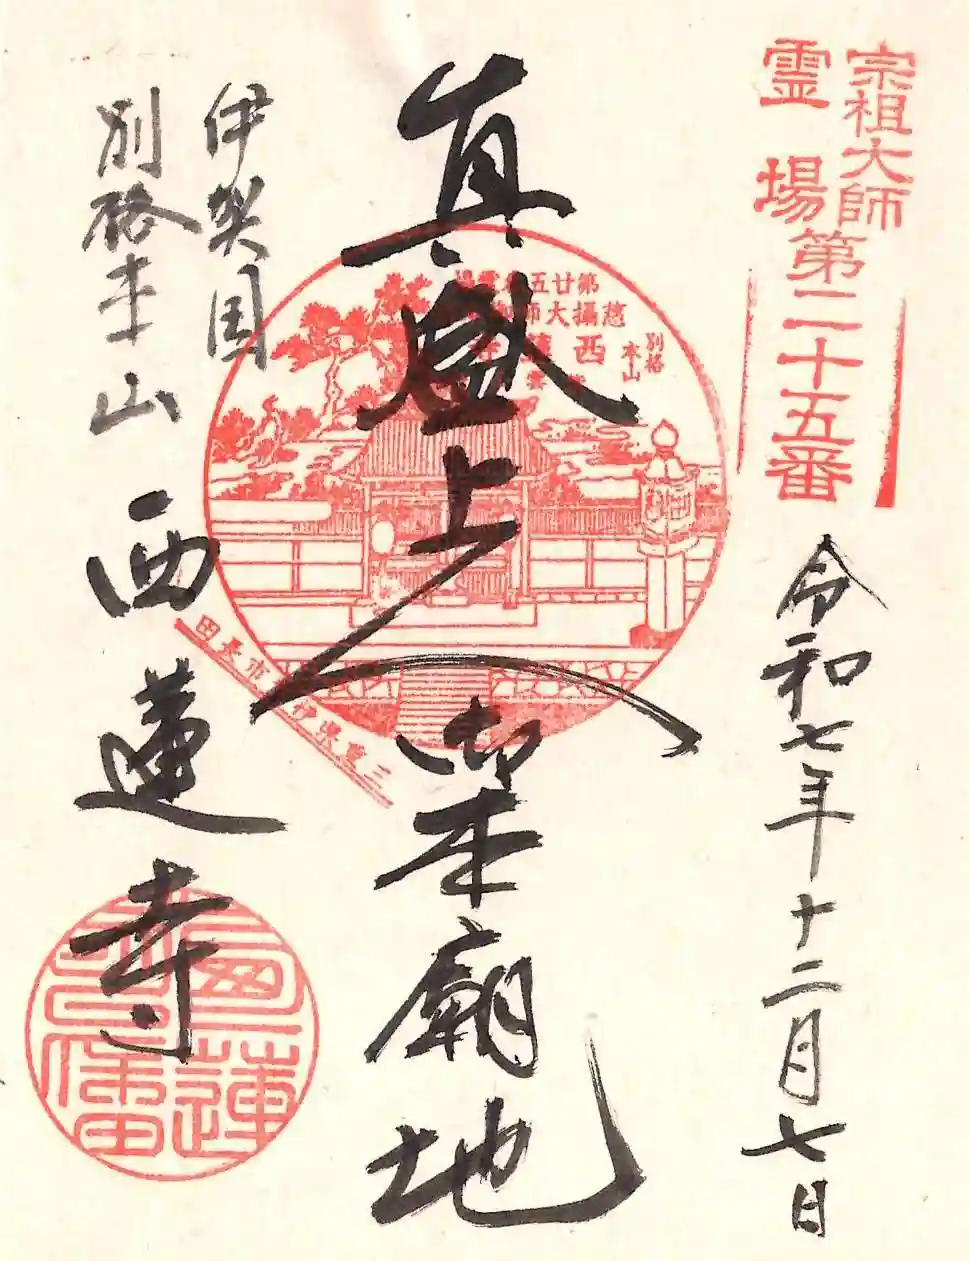 宗祖大師
霊場
第二十五番
令和七年十二月七日
真盛上人
御本廟地
第廿五番霊場
慈攝大師
西蓮寺
別格
本山
三重県伊
市長田
伊賀国
別格本山
西蓮寺